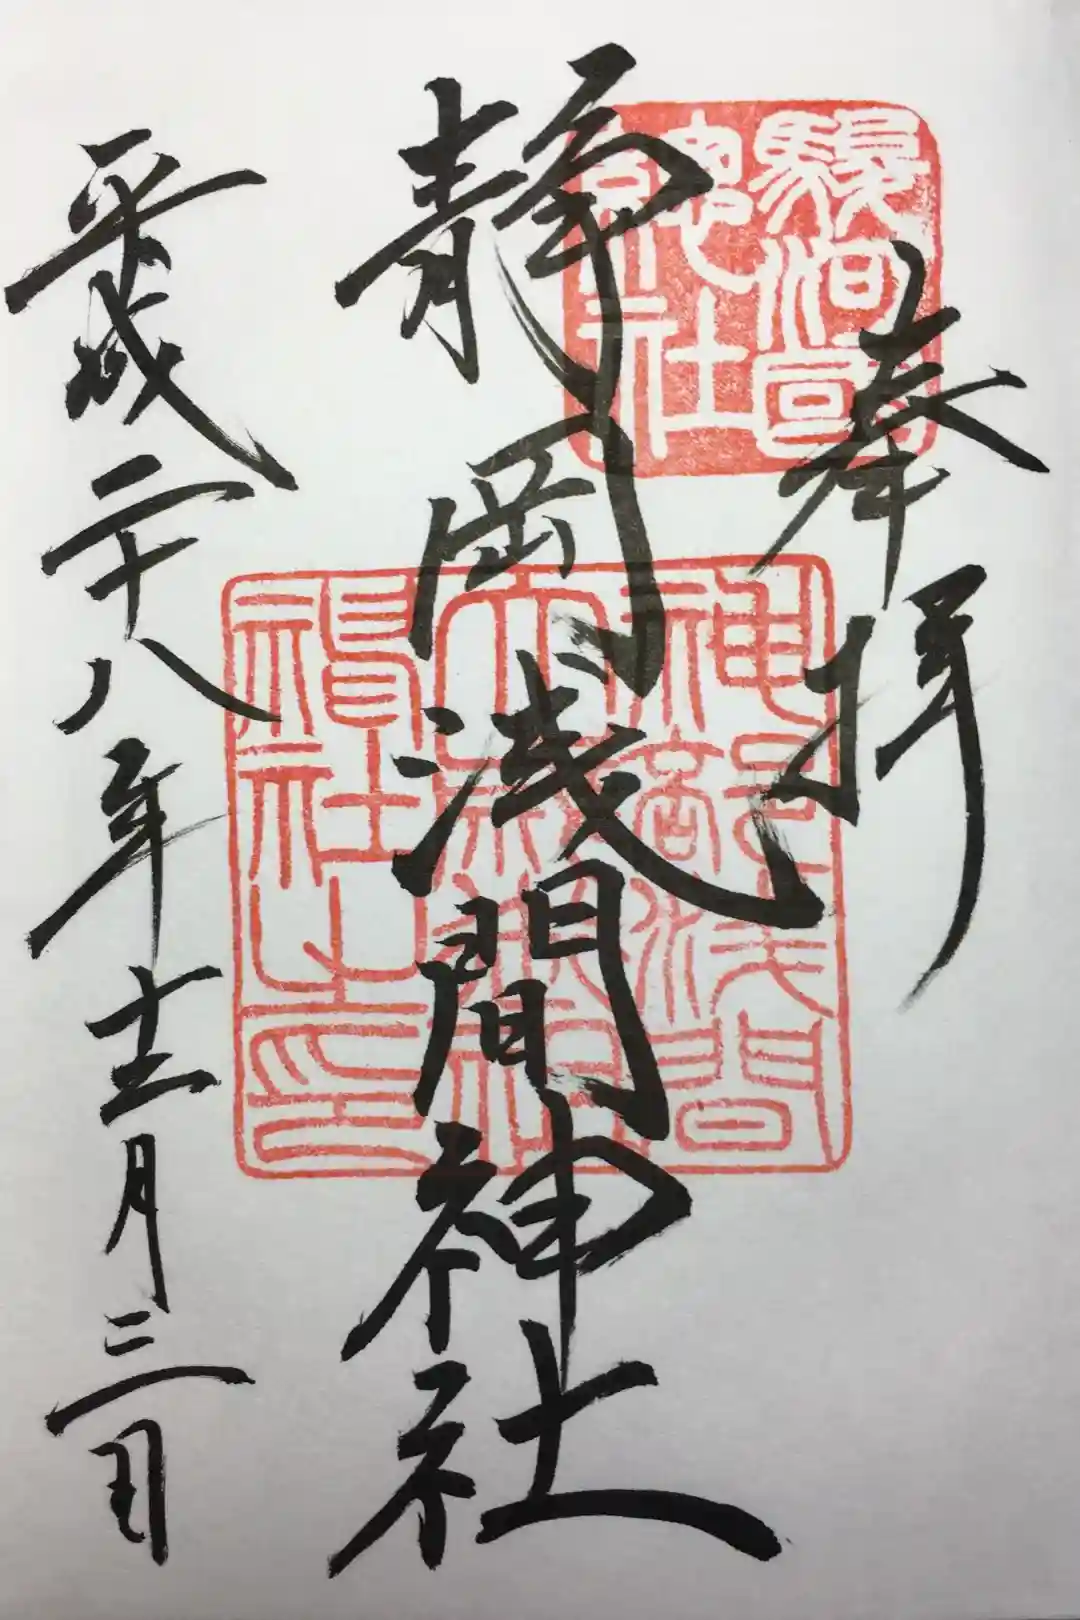 奉拝
駿河國
總社
静岡浅間神社
神部浅間
大歳御祖
神社之印
平成二十八年十二月三日